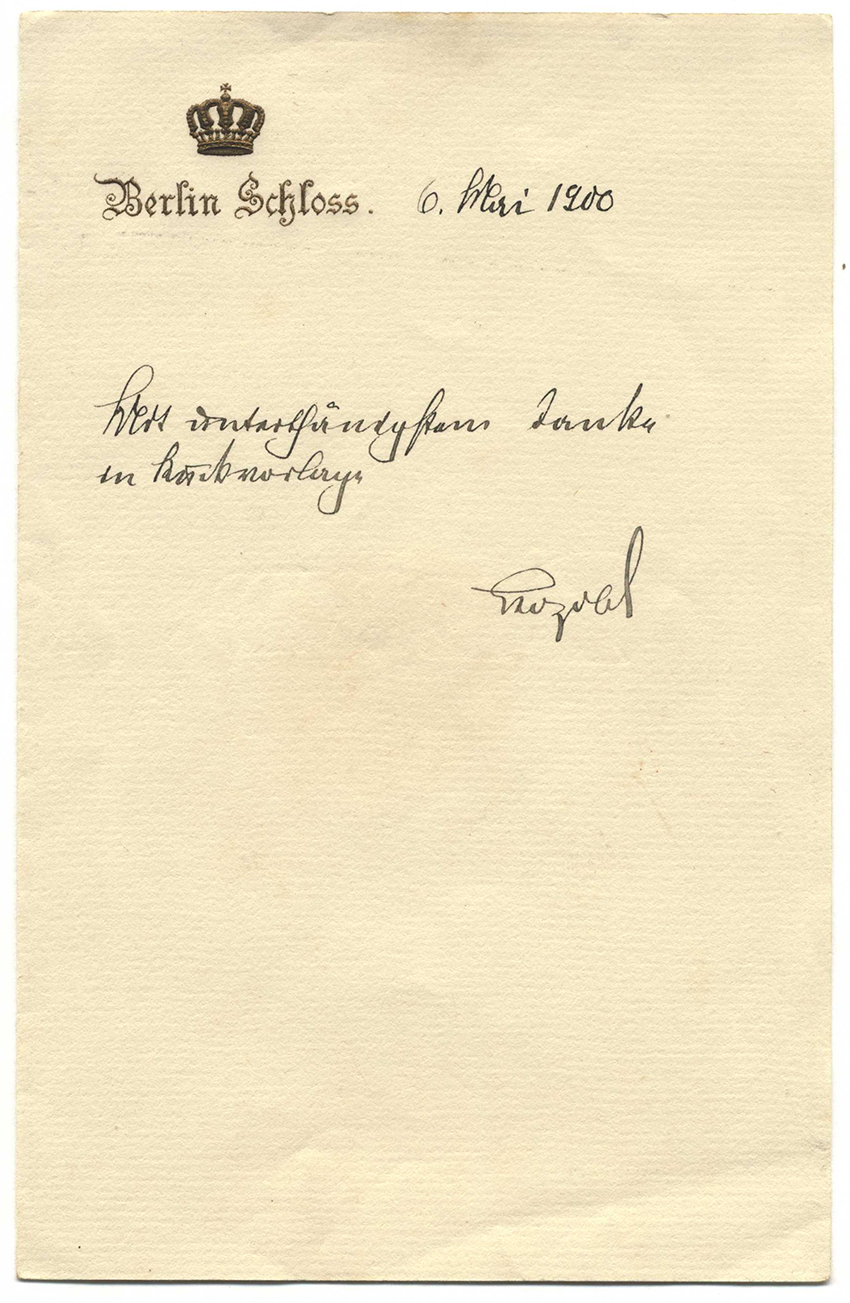 Berlin Schloss. 6. Mai 1900
Mit unterthänigstem Danke
in Rückvorlage